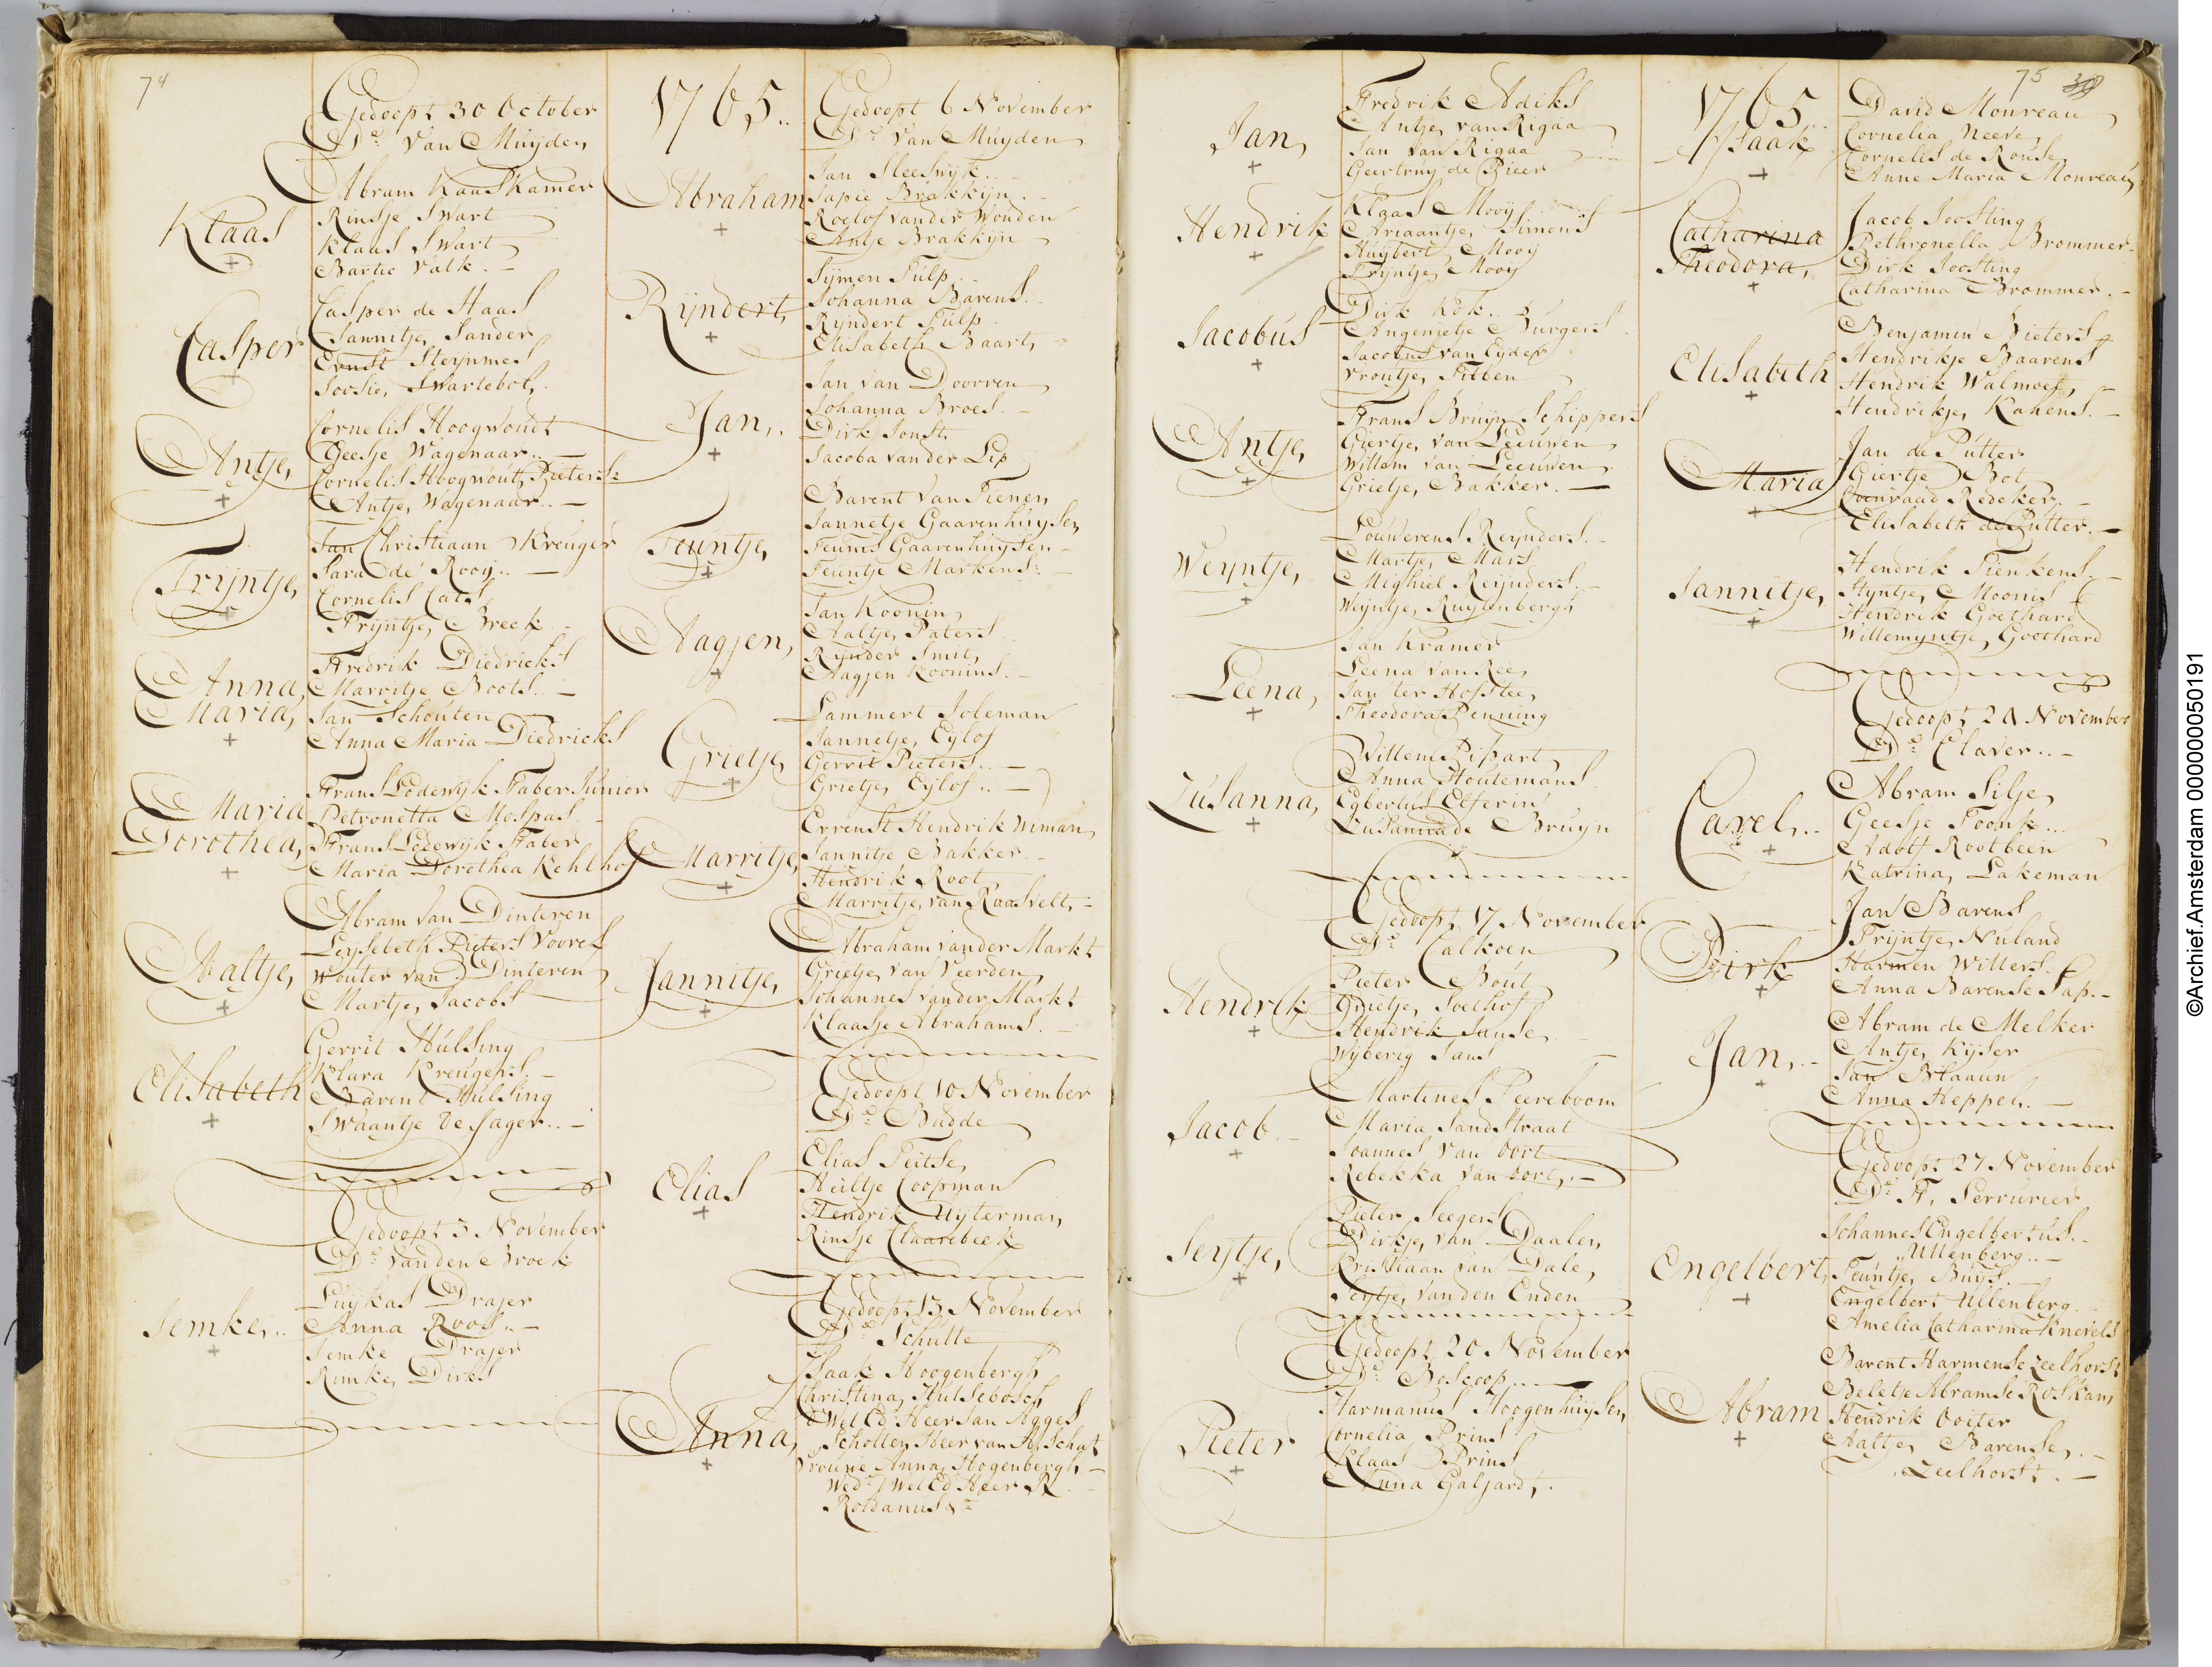 74
Gedoopt 30 October
Ds. van Muyden
Klaas
Abram Kaaskamer
Rinsje Swart
Klaas Swart
Bartie Valk. –
Casper
Casper de Haas
Jannitje Sander
Ernst Steynmes
Joosie, Swartebol,
Antje,
Cornelis Hoogwoudt
Geesje Wagenaar.. –
Cornelis Hoogwout, Pietersz
Antje, Wagenaar.. –
Trijntje,
Jan Christiaan Kreuger
Sara de Rooy.. –
Cornelis Cats
Trijntje, Breek –
Anna
Maria,
Fredrik Diedricks
Marritje Boots.. –
Jan Schouten
Anna Maria Diedricks
Maria
Dorothea,
Frans Lodewyk Faber Junior
Petronella Mespas.
Frans Lodewyk Faber
Maria Dorothea Kehlhof
Aaltje,
Abram van Dinteren
Leysebeth Pieters Voores
Wouter van Dinteren
Martje, Jacobs
Elisabeth
Gerrit Hulsing
Klara Kreugers. –
Barent Hulsing
Swaantje de Jager.. –
Gedoopt 3 November
Ds. van den Broek
Jemke,..
Luykas Drajer
Anna Roos.. –
Jemke Drajer
Rimke, Dirks
1765..
Gedoopt 6 November
Ds. van Muyden
Abraham
Jan Sleeswyk.. –
Sapie Brakkyn. –
Roelof vander Wouden
Antje Brakkyn
Rijndert,
Symen Tulp.
Johanna Barens. –
Ryndert Tulp.
Elisabeth Baart,
Jan,.
Jan van Doorren
Johanna Broes. –
Dirk Jonst,
Jacoba vander Lip
Teuntje,
Barent van Tienen,
Jannetje Gaarenhuysen,
Teunis Gaarenhuysen –
Teuntje Markens: –
Aagjen,
Jan Koonin,
Aaltje, Paters
Rynder Smit,
Aagjen Koonins. –
Grietje
Lammert Joleman
Jannetje, Eylof
Gerrit Pieters.. –
Grietje, Eylof.. –
Marritje,
Errenst Hendrik Niman,
Jannitje Bakker. –
Hendrik Root,
Marritje, van Raasvelt, –
Jannitje,
Abraham vander Markt
Grietje, van Veerden,
Johannes vander Markt
Klaasje Abrahams. –
Gedoopt 10 November
Ds. Budde
Elias
Elias Peitse,
Hiltje Coopman
Hendrik Uyterman,
Rinsje Claarebeek
Gedoopt, 13 November
Ds. Schutte
Anna,
Isaak Hoogenbergh
Christina, Hulsebosch,
Wel Ed Heer Jan Agges
Scholten Heer van A Schat
Vrouwe Anna, Hogenbergh, –
Wed: Wel Ed Heer R.
Roldanus &c
Jan,
Fredrik Adiks
Antje, van Rigaa
Jan van Rigaa
Geertruy de Pieer
Hendrik
Klaas Mooij
Ariaantje, Simons
Huybert Mooy
Tryntje, Mooy
Jacobus
Dirk Kok..
Angenietje Burgers..
Jacobus van Eyder
Vrontje, Tilben
Antje,
Frans Bruyn Schippers
Giertje, van Leeuwen
Willem van Leeuwen,
Grietje, Bakker. –
Weyntje,
Louwerens Reynders. –
Martje, Mars
Mighiel Reynders. –
Weyntje, Ruytenbergh
Leena,
Jan Kramer
Leena van Ree,
Jan ter Hofstee,
Theodora Penning
Zusanna,
Willem Pissart,
Anna Houtemans
Egbertus Elferin
Zusanna de Bruyn
Gedoopt, 17 November
Ds. Calkoen
Hendrik
Pieter Bout,
Grietje, Soelhof
Hendrik Janse,
Wyberig Jans
Jacob. –
Martines Peereboom
Maria Sandstraat
Joannes van Oort
Rebekka van Oort,. –
Seytje,
Pieter Seegers
Dirkje, van Daalen,
Kristiaan van Dale,
Seytje, vanden Enden
Gedoopt, 20 November
Ds. Boscoop...
Pieter
Harmanus Hoogenhuysen,
Cornelia Prins
Klaas Prins
Anna Galjard,.
75
1765
Isaak
David Monreau
Cornelia Neeve,
Cornelis de Rouse,
Anne Maria Monreau,
Catharina
Theodora,
Jacob Joosting
Pethronella Brommer –
Dirk Joosting
Catharina Brommer. –
Elisabeth
Benjamin Bieters
Hendrikje Baarens
Hendrik Walmoes,
Hendrikje, Kahens. –
Maria
Jan de Putter
Giertje, Bot
Coenraad Redeker,. –
Elisabeth de Putter. –
Jannitje,
Hendrik Tienkens. –
Styntje, Moonis
Hendrik Goethard
Willemyntje, Goethard
Gedoopt, 24 November
Ds. Claver.. –
Carel,..
Abram Silje,
Geesje Toonk...
Adolf Rootbeen
Katrina, Lakeman
Dirk
Jan Barens
Tryntje, Nuland
Harmen Willers.
Anna Barense Sap. –
Jan,..
Abram de Melker
Antje, Kyser
Jan Blaauw
Anna Heppel,. –
Gedoopt 27 November
Ds. A, Serrurier
Engelbert,
Johannes Engelbertus. –
Ullenberg.. –
Teuntje, Buys. –
Engelbert Ullenberg.
Amelia Catharina Knevels
Abram
Barent Harmense Zeelhorst
Beletje Abramse Roskam,
Hendrik Ooiter
Aaltje, Barense,. –
Zeelhorst. –
©Archief.Amsterdam 000000050191